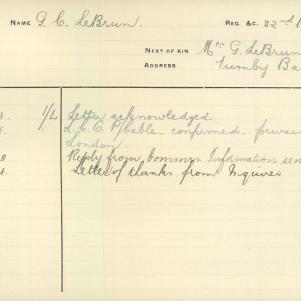 NAME G. C. LeBrun. REG. &C. 32nd
NEXT OF KIN Mrs G. LeBrun
ADDRESS Tumby Ba
1/L Letter acknowledged.
L.C.C. P/Cable confirmed
London
Reply from Commrs Information sen
Letter of thanks from Inquirer